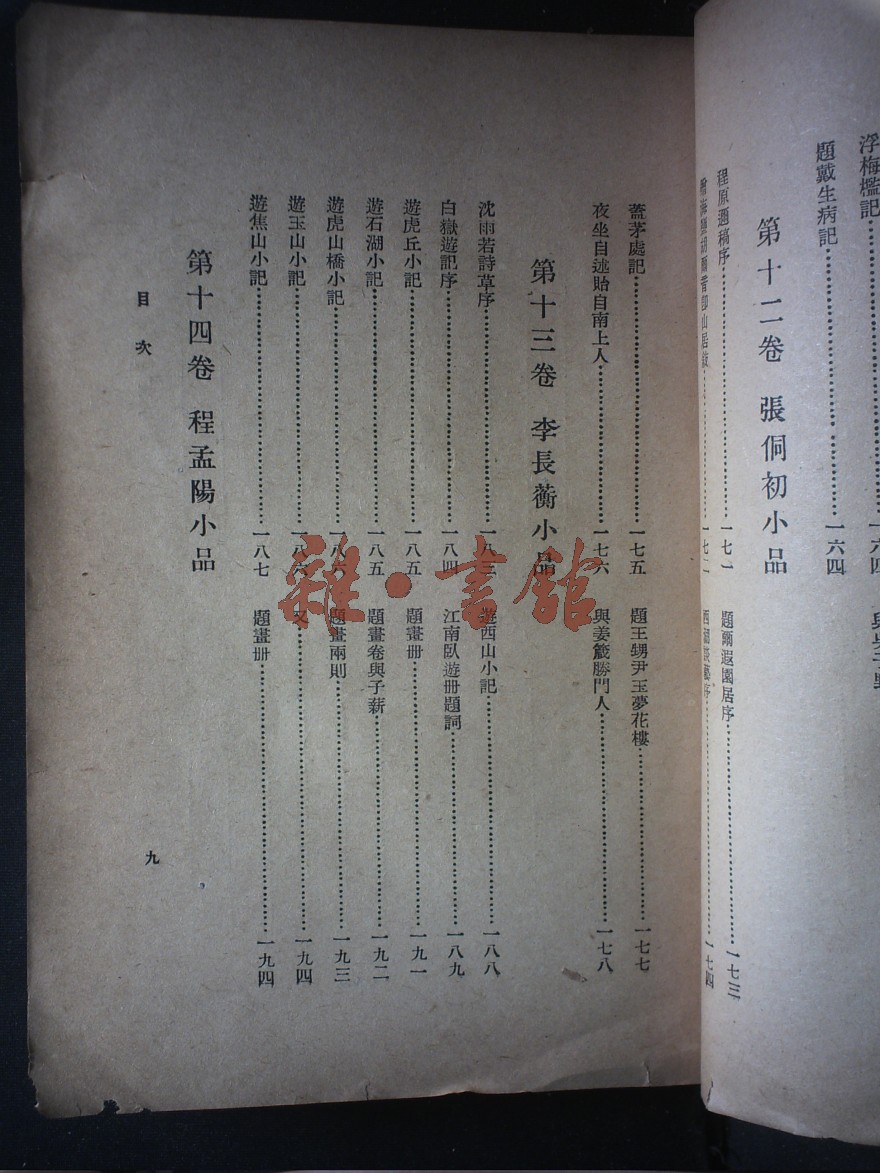 浮梅檻記
一六四
題戴生病記
一六四
第十二卷 張侗初小品
程原邇稿序
一七一
題爾遐園居序
一七三
一七二
一七四
蓋茅處記
一七五
題王甥尹玉夢花樓
一七七
夜坐自述貽自南上人
一七六
與姜箴勝門人
一七八
第十三卷 李長蘅小品
沈雨若詩草序
一八三
遊西山小記
一八八
白嶽遊記序
一八四
江南臥遊册題詞
一八九
遊虎丘小記
一八五
題畫册
一九一
遊石湖小記
一八五
題畫卷與子薪
一九二
遊虎山橋小記
一八六
題畫兩則
一九三
遊玉山小記
一八六
又
一九四
遊焦山小記
一八七
題畫册
一九四
第十四卷 程孟陽小品
目次
九
雜·書館